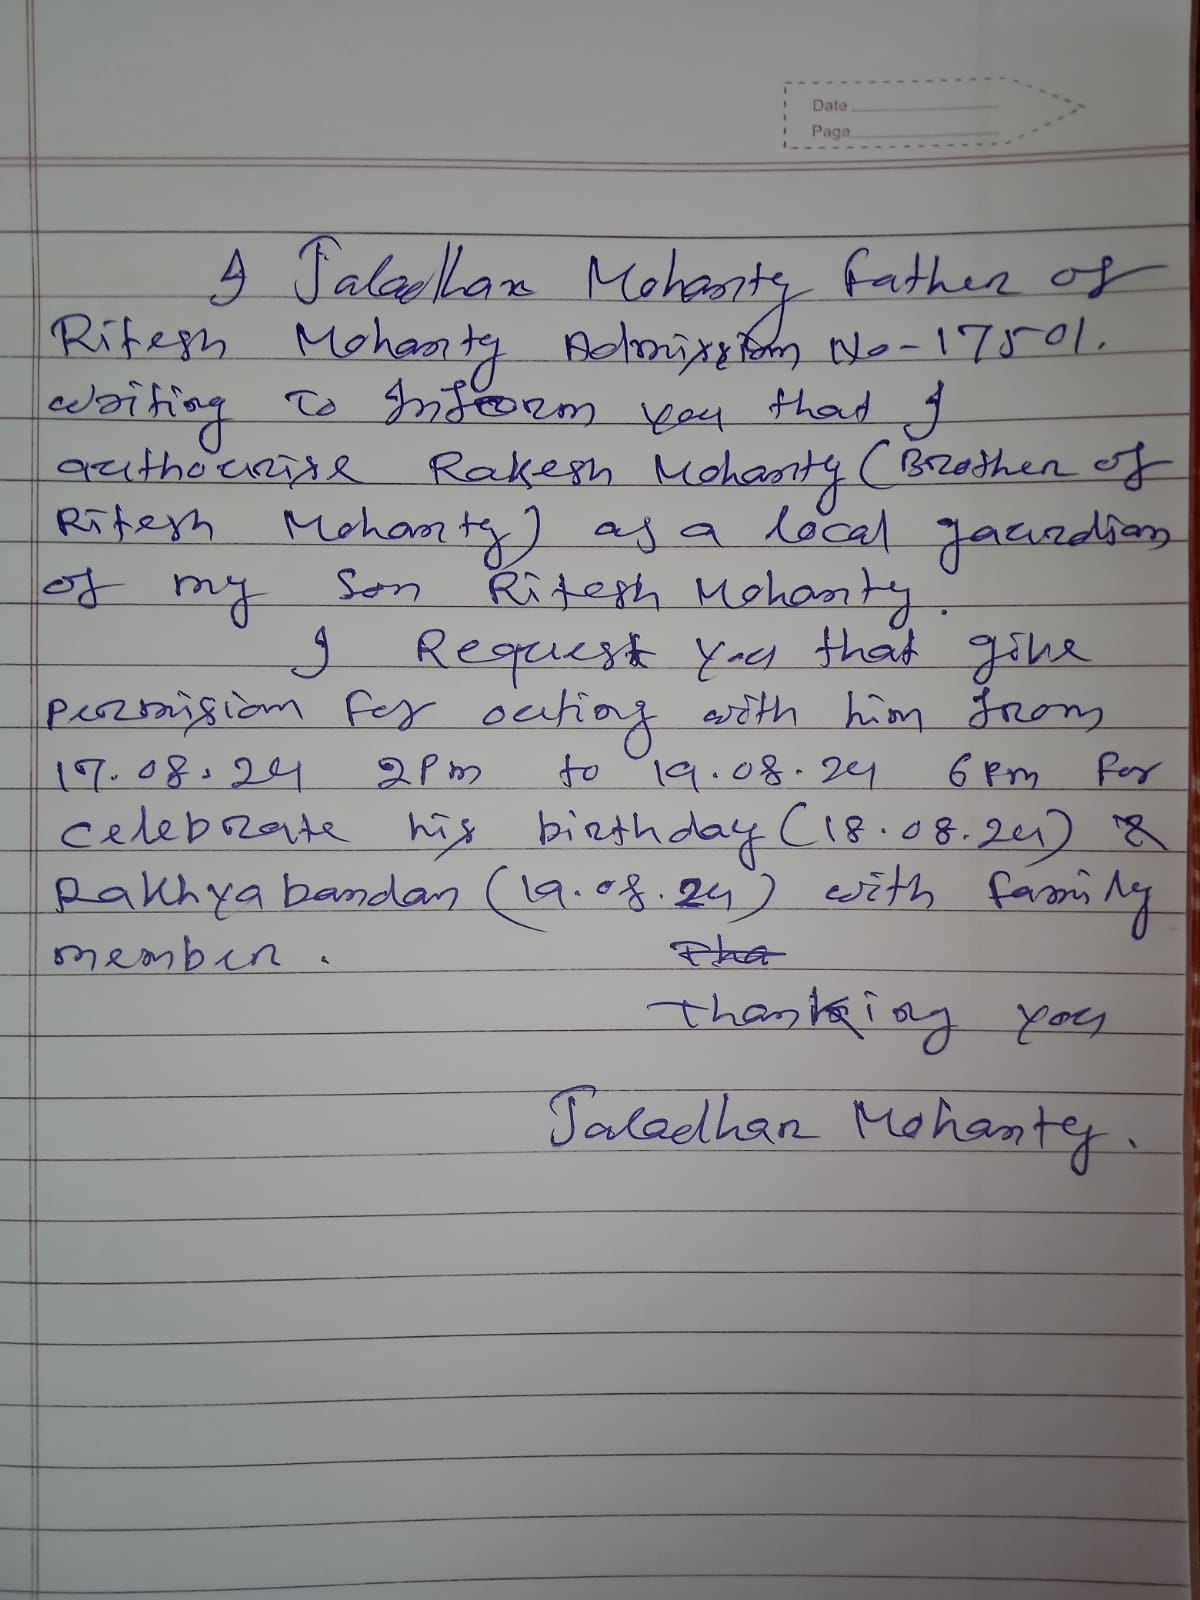 Date
Page
I Jaladhar Mohanty Father of
Ritesh Mohanty Admission No-17501.
writing To Inform you that I
authourise Rakesh Mohanty (Brother of
Ritesh Mohanty) as a local gaurdian
of my Son Ritesh Mohanty.
I Request you that give
permision for outing with him from
17.08.24 2Pm to 19.08.24 6Pm for
celebrate his birthday (18.08.24) &
Rakhyabandan (19.08.24) with family
member. Tha
Thanking you
Jaladhar Mohanty.